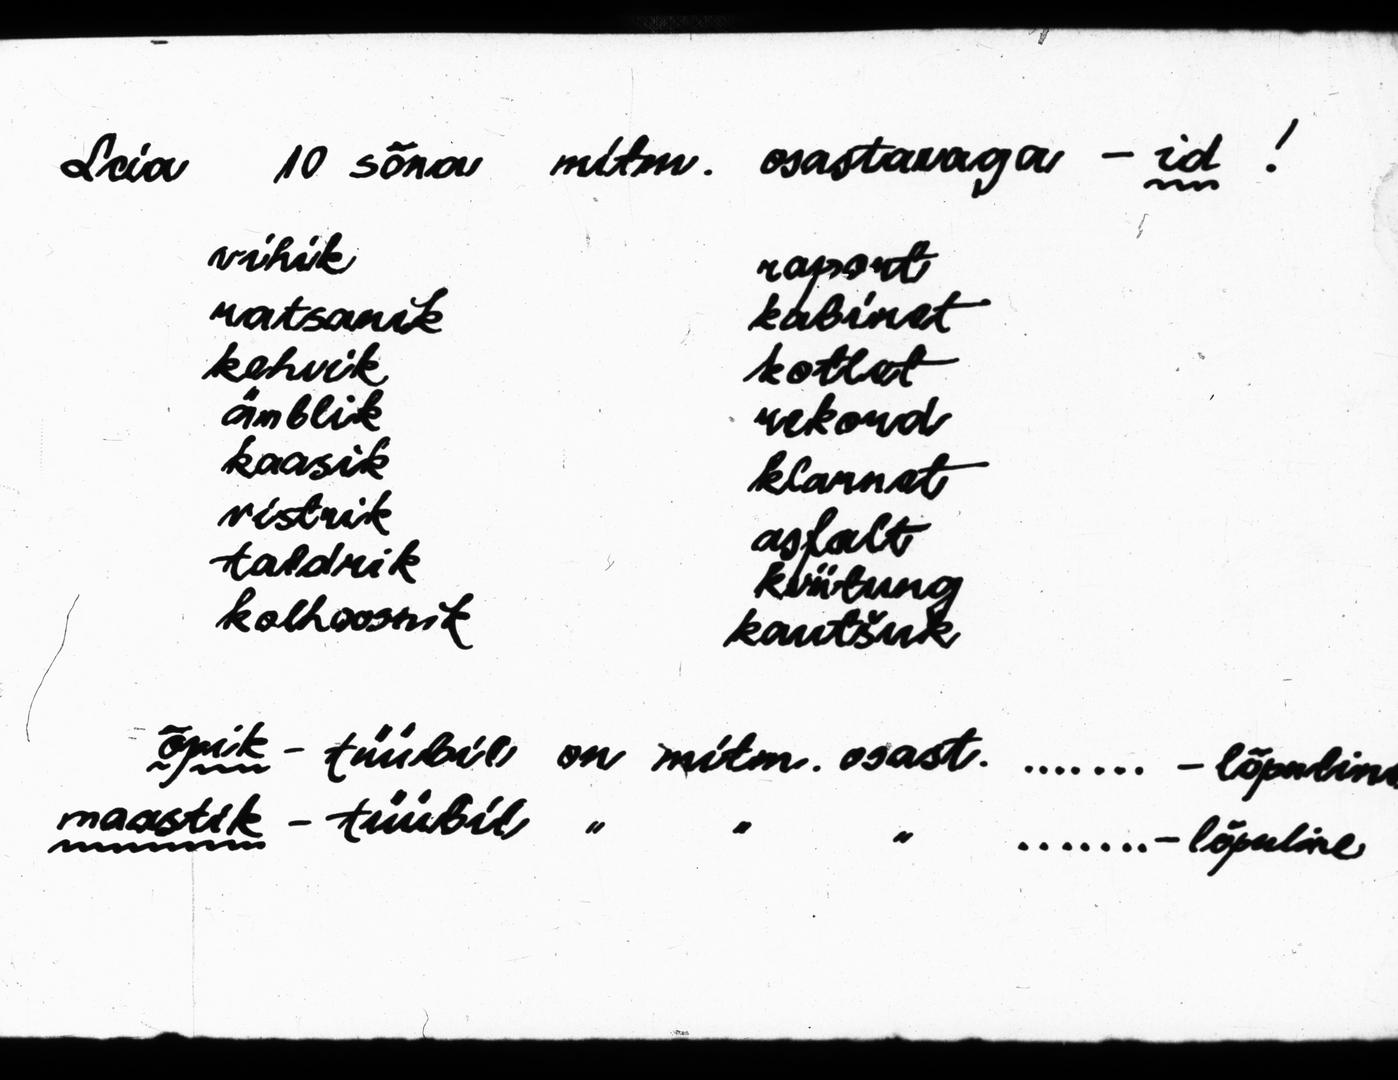 Leia 10 sõna mitm. osastavaga - id !
vihik
ratsanik
kehvik
ämblik
kaasik
ristrik
taldrik
kolhoosnik
raport
kabinet
kotlet
rekord
klarnet
asfalt
kviitung
kautšuk
õpik - tüübil on mitm. osast. ....... - lõpuline
maastik - tüübil " " " ....... - lõpuline